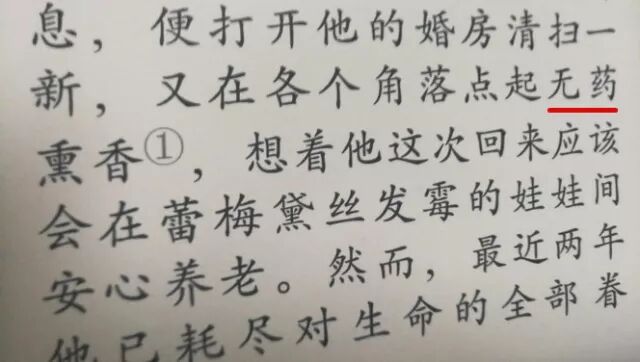 息，便打开他的婚房清扫一
新，又在各个角落点起无药
熏香①，想着他这次回来应该
会在蕾梅黛丝发霉的娃娃间
安心养老。然而，最近两年
他已耗尽对生命的全部眷